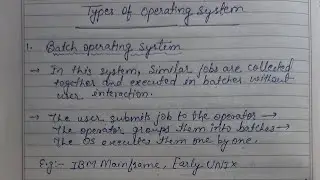 Types of operating system
1. Batch operating system
→ In this system, Similar jobs are collected
together and executed in batches without
user interaction.
→ The user submits job to the operator →
The operator groups them into batches →
The OS executes them one by one.
E.g:- IBM Mainframe, Early UNIX